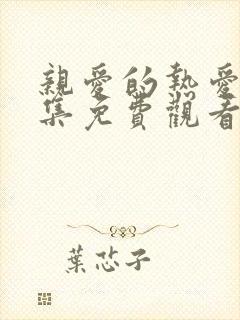 親愛的熱愛
集免費觀看
葉芯子